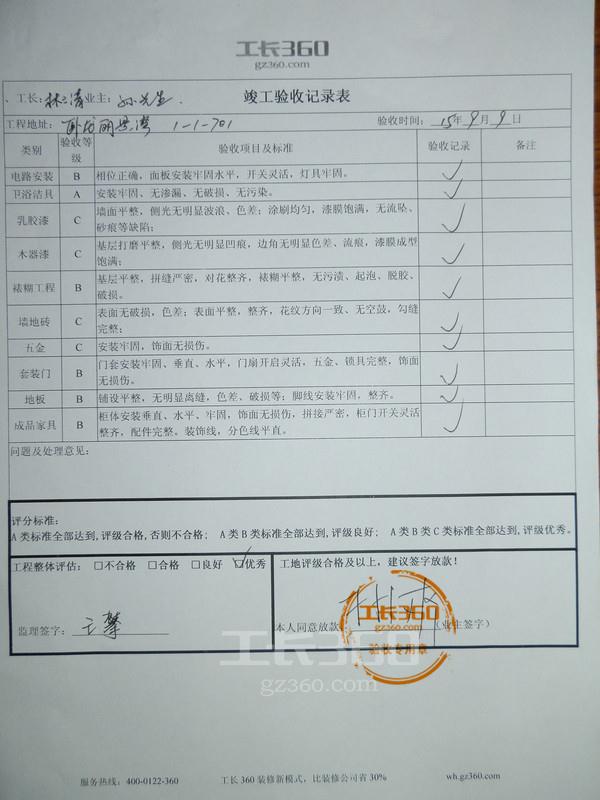 工长360
gz360.com
、工长:林清 业主:孙先生. 竣工验收记录表
工程地址: 卧龙丽景湾 1-1-701 验收时间: 15年9月9日
类别 验收等级 验收项目及标准 验收记录 备注
电路安装 B 相位正确，面板安装牢固水平，开关灵活，灯具牢固。 ✓
卫浴洁具 A 安装牢固、无渗漏、无破损、无污染。 ✓
乳胶漆 C 墙面平整，侧光无明显波浪、色差；涂刷均匀，漆膜饱满，无流坠、
砂痕等缺陷； ✓
木器漆 C 基层打磨平整，侧光无明显凹痕，边角无明显色差、流痕，漆膜成型
饱满； ✓
裱糊工程 B 基层平整，拼缝严密，对花整齐，裱糊平整，无污渍、起泡、脱胶、
破损。 ✓
墙地砖 C 表面无破损，色差；表面平整，整齐，花纹方向一致、无空鼓，勾缝
完整； ✓
五金 C 安装牢固，饰面无损伤。 ✓
套装门 B 门套安装牢固、垂直、水平，门扇开启灵活，五金、锁具完整，饰面
无损伤。 ✓
地板 B 铺设平整，无明显离缝，色差、破损等；脚线安装牢固，整齐。 ✓
成品家具 B 柜体安装垂直、水平、牢固，饰面无损伤，拼接严密，柜门开关灵活
整齐，配件完整。装饰线，分色线平直。 ✓
问题及处理意见:
评分标准:
A类标准全部达到,评级合格,否则不合格; A类B类标准全部达到,评级良好; A类B类C类标准全部达到,评级优秀。
工程整体评估: □不合格 □合格 □良好 ☑优秀 工地评级合格及以上，建议签字放款！
监理签字: 本人同意放款 (业主签字)
工长360
验收专用章
工长360
gz360.com
服务热线: 400-0122-360 工长360装修新模式，比装修公司省30% wh.gz360.com